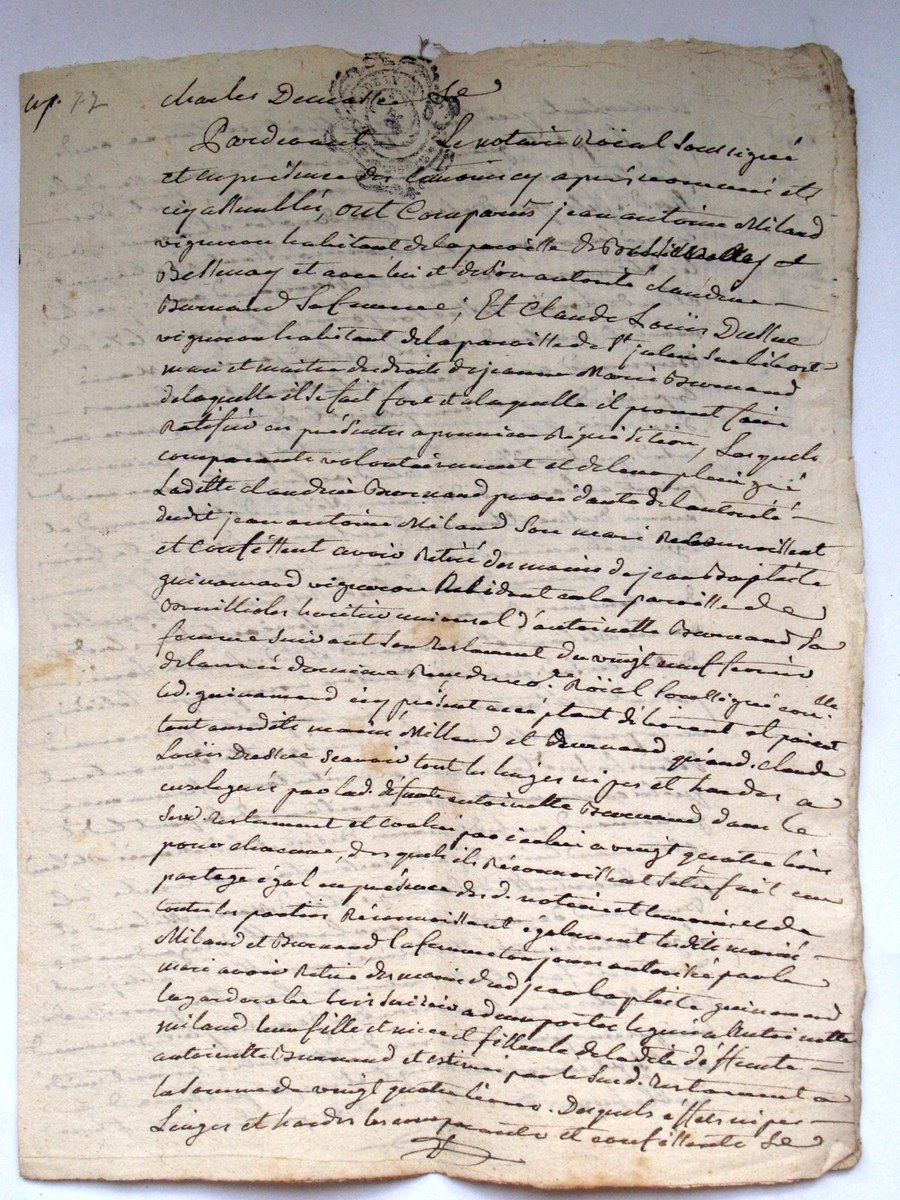 charles Le
Pardevant Le notaire Roïal Soussigné
et en présence des temoins cy après nommés et
cy assemblés, ont Comparus jean antoine Miland
vigneron habitant de la paroisse de &
et avec lui et de Son autorité claudine
Burnand Sa femme; Et Claude Louis
vigneron habitant de la paroisse de St julien
mari et maitre des droits de jeanne Marie Burnand
de laquelle il Se fait fort et a laquelle il promet faire
Ratifier ces présentes a premiere Réquisition, Lesquels
comparants volontairement et de leur plein gré
Laditte claudine Burnand procédante de l'autorité
dudit jean antoine Miland Son mari Reconnoissent
et Confessent avoir Retiré des mains de jean Baptiste
guinamand vigneron Résident en la paroisse de
heritier universel d'antoinette Burnand Sa
femme Suivant Son Testament du vingt neuf
de l'année derniere Reçu Roïal Soussigné
led. guinamand icy présent acceptant délivrant et
tant auxdits mariés Milland et Burnand qu'aud. claude
Louis Scavoir tout les linges nipes et hardes a
eux legués par lad. défunte antoinette Burnand dans le
Susd. Testament et par icelui a vingt quatre livres
pour chacune, desquels ils Réconnoissent Sêtre fait un
partage égal en présence des d. notaire et temoins et de
toutes les parties Réconnoissent également lesdits mariés
Miland et Burnand la femme toujours autorisée par le
mari avoir Retiré des mains dud jean baptiste guinamand
la garderobe legués a Antoinette
miland leur fille et niece et filleule de ladite défunte
antoinette Burnand et estimés par le Susd. Testament a
la Somme de vingt quatre livres. Desquels effets nipes
Linges et hardes les comparants et confessants Se